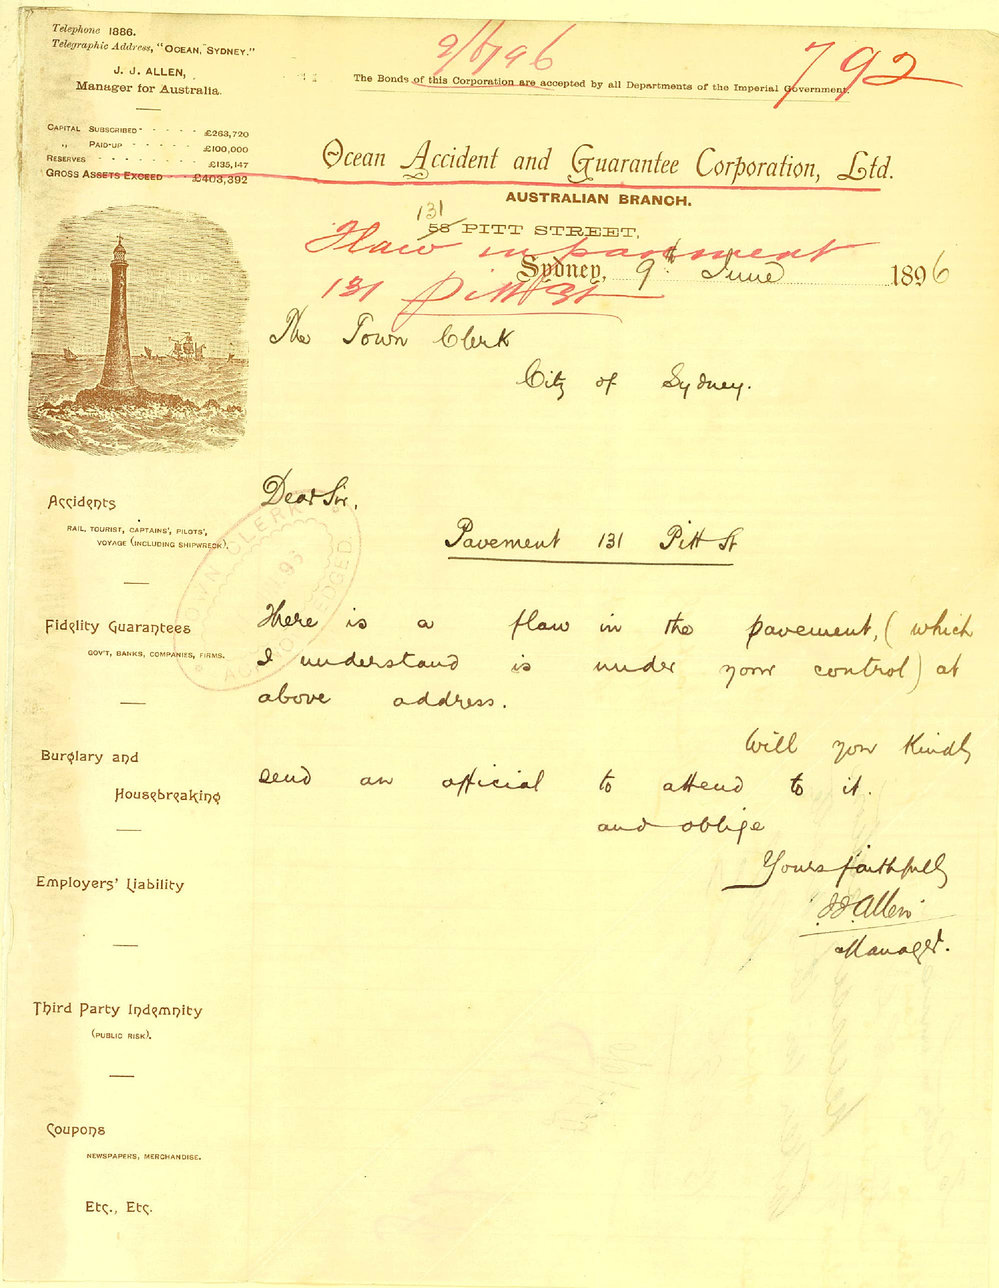 Telephone 1886.
Telegraphic Address, "OCEAN, SYDNEY."
J. J. ALLEN,
Manager for Australia.
9/6/96
792
The Bonds of this Corporation are accepted by all Departments of the Imperial Government.
CAPITAL SUBSCRIBED - - - - £263,720
„ PAID-UP - - - - - £100,000
RESERVES - - - - - - - £135,147
GROSS ASSETS EXCEED - - £403,392
Ocean Accident and Guarantee Corporation, Ltd.
AUSTRALIAN BRANCH.
131
58 PITT STREET,
Flaw in pavement
Sydney, 9th June 1896
131 Pitt St
The Town Clerk
City of Sydney.
Dear Sir,
Pavement 131 Pitt St
There is a flaw in the pavement, (which
I understand is under your control) at
above address.
Will you kindly
send an official to attend to it.
and oblige
Yours faithfully
J.J. Allen
Manager.
Accidents
RAIL, TOURIST, CAPTAINS', PILOTS',
VOYAGE (INCLUDING SHIPWRECK).
Fidelity Guarantees
GOV'T, BANKS, COMPANIES, FIRMS.
Burglary and
Housebreaking
Employers' Liability
Third Party Indemnity
(PUBLIC RISK).
Coupons
NEWSPAPERS, MERCHANDISE.
Etc., Etc.
TOWN CLERK
ACKNOWLEDGED